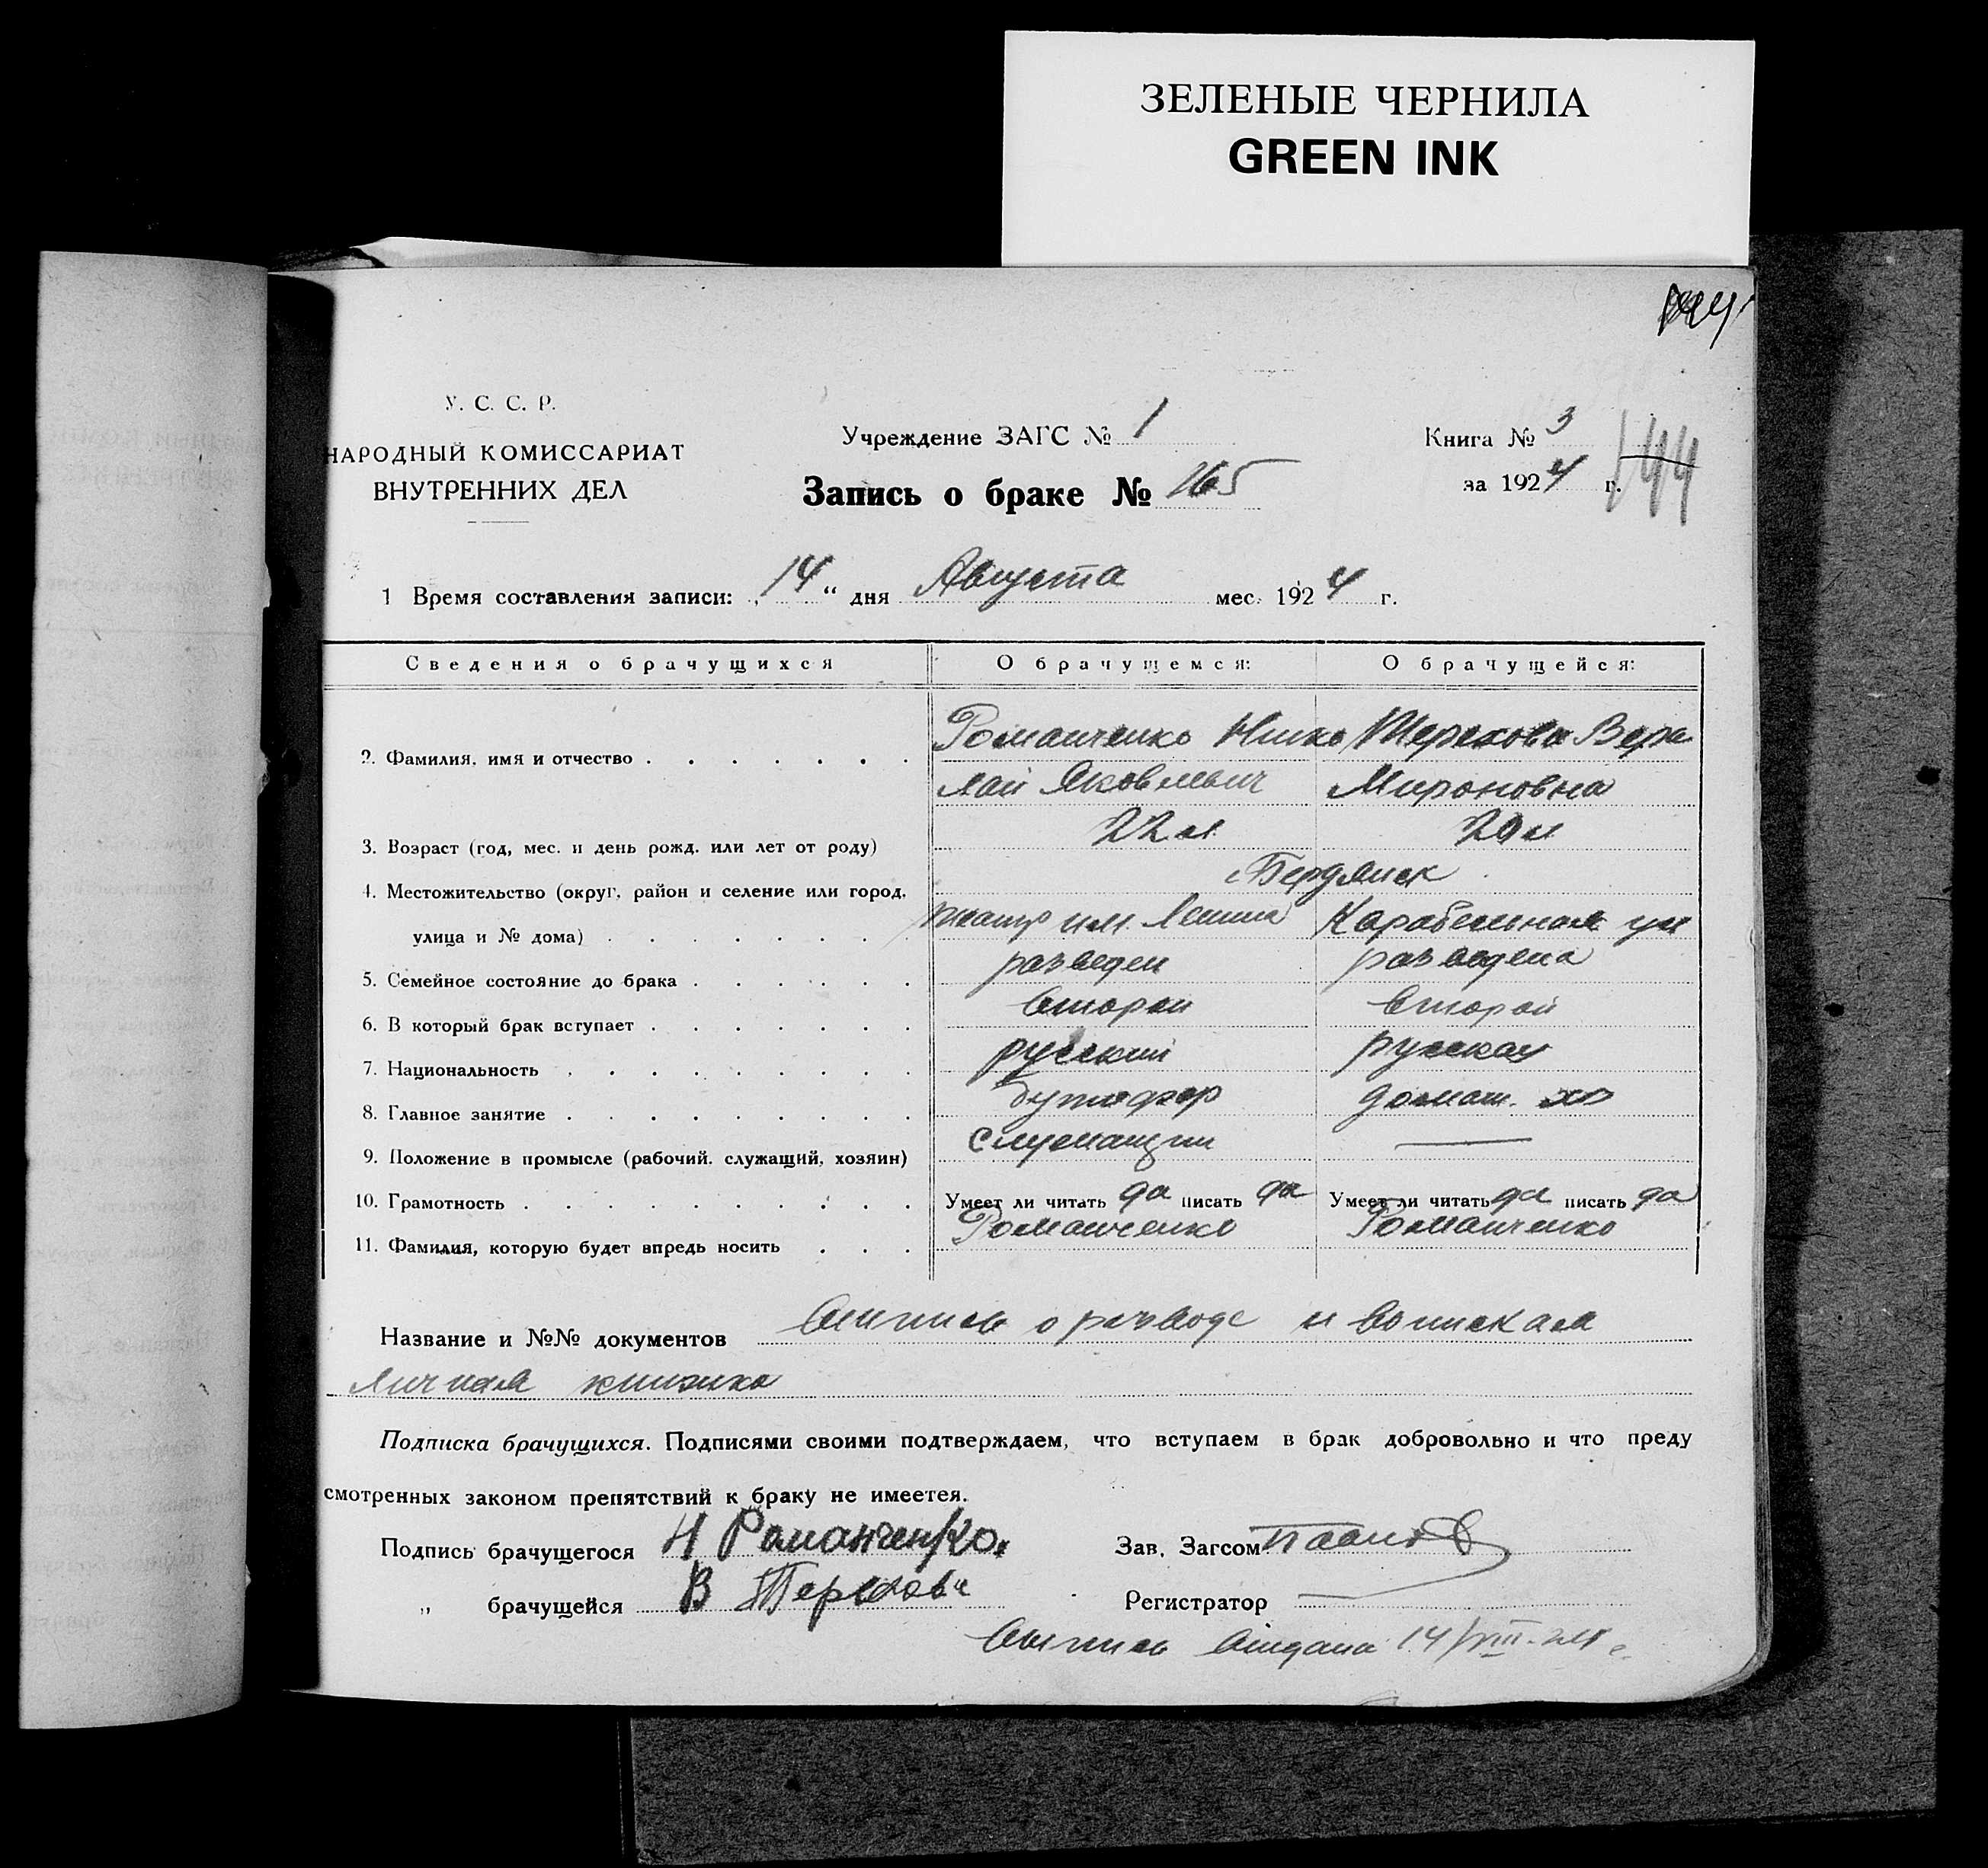 ЗЕЛЕНЫЕ ЧЕРНИЛА
GREEN INK
У. С. С. Р.
НАРОДНЫЙ КОМИССАРИАТ
ВНУТРЕННИХ ДЕЛ
Учреждение ЗАГС № 1
Запись о браке № 265
Книга № 3
за 1924 г.
144
1 Время составления записи: „14“ дня Августа мес. 1924 г.
Сведения о брачущихся О брачущемся: О брачущейся:
2. Фамилия, имя и отчество Романченко Нико Терехова Вера
лай Яковлевич Мироновна
3. Возраст (год, мес. и день рожд. или лет от роду) 22 л 20 л
4. Местожительство (округ, район и селение или город, Бердянск
улица и № дома) театр им. Ленина Карабельная ул
5. Семейное состояние до брака разведен разведена
6. В который брак вступает второй второй
7. Национальность русский русская
8. Главное занятие бутафор домаш. хоз
9. Положение в промысле (рабочий, служащий, хозяин) служащий —
10. Грамотность Умеет ли читать да писать да Умеет ли читать да писать да
11. Фамилия, которую будет впредь носить Романченко Романченко
Название и №№ документов выпись о разводе и
личная книжка
Подписка брачущихся. Подписями своими подтверждаем, что вступаем в брак добровольно и что преду
смотренных законом препятствий к браку не имеетея.
Подпись брачущегося Н Романченко. Зав. Загсом
„ брачущейся В Терехова Регистратор
Выпись выдана 14/VIII-24 г.